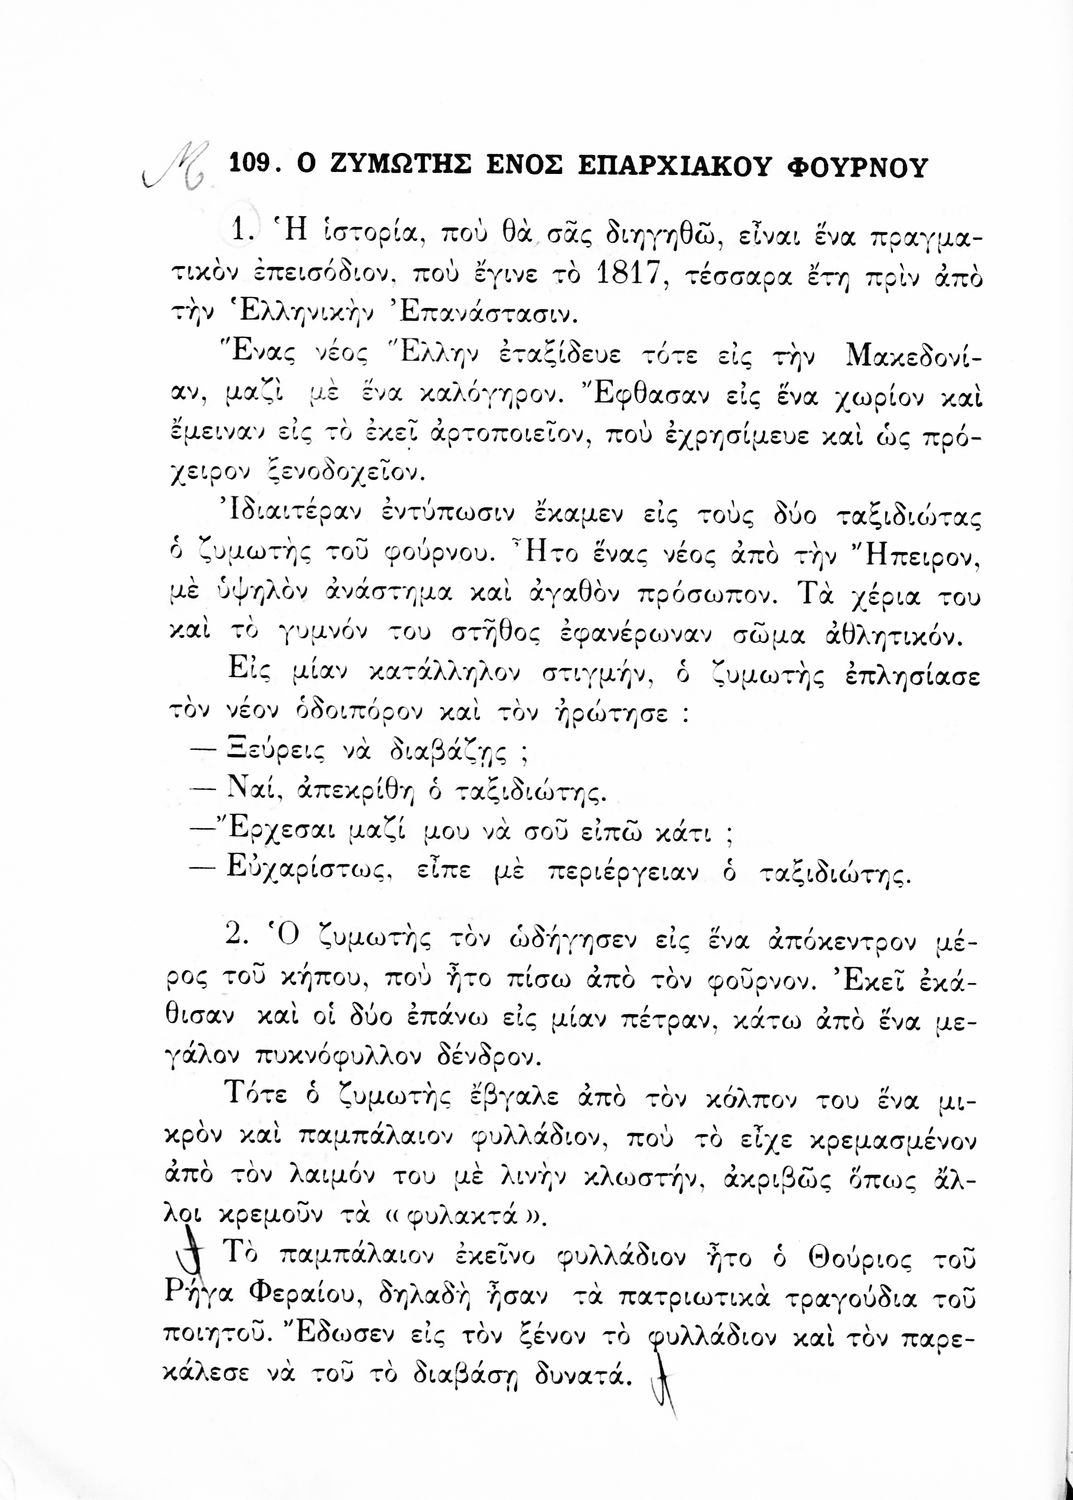 109. Ο ΖΥΜΩΤΗΣ ΕΝΟΣ ΕΠΑΡΧΙΑΚΟΥ ΦΟΥΡΝΟΥ
1. Ἡ ἱστορία, ποὺ θὰ σᾶς διηγηθῶ, εἶναι ἕνα πραγμα-
τικὸν ἐπεισόδιον, ποὺ ἔγινε τὸ 1817, τέσσαρα ἔτη πρὶν ἀπὸ
τὴν Ἑλληνικὴν Ἐπανάστασιν.
Ἕνας νέος Ἕλλην ἐταξίδευε τότε εἰς τὴν Μακεδονί-
αν, μαζὶ μὲ ἕνα καλόγηρον. Ἔφθασαν εἰς ἕνα χωρίον καὶ
ἔμειναν εἰς τὸ ἐκεῖ ἀρτοποιεῖον, ποὺ ἐχρησίμευε καὶ ὡς πρό-
χειρον ξενοδοχεῖον.
Ἰδιαιτέραν ἐντύπωσιν ἔκαμεν εἰς τοὺς δύο ταξιδιώτας
ὁ ζυμωτὴς τοῦ φούρνου. Ἦτο ἕνας νέος ἀπὸ τὴν Ἤπειρον,
μὲ ὑψηλὸν ἀνάστημα καὶ ἀγαθὸν πρόσωπον. Τὰ χέρια του
καὶ τὸ γυμνόν του στῆθος ἐφανέρωναν σῶμα ἀθλητικόν.
Εἰς μίαν κατάλληλον στιγμήν, ὁ ζυμωτὴς ἐπλησίασε
τὸν νέον ὁδοιπόρον καὶ τὸν ἠρώτησε :
— Ξεύρεις νὰ διαβάζῃς ;
— Ναί, ἀπεκρίθη ὁ ταξιδιώτης.
—Ἔρχεσαι μαζί μου νὰ σοῦ εἰπῶ κάτι ;
— Εὐχαρίστως, εἶπε μὲ περιέργειαν ὁ ταξιδιώτης.
2. Ὁ ζυμωτὴς τὸν ὡδήγησεν εἰς ἕνα ἀπόκεντρον μέ-
ρος τοῦ κήπου, ποὺ ἦτο πίσω ἀπὸ τὸν φοῦρνον. Ἐκεῖ ἐκά-
θισαν καὶ οἱ δύο ἐπάνω εἰς μίαν πέτραν, κάτω ἀπὸ ἕνα με-
γάλον πυκνόφυλλον δένδρον.
Τότε ὁ ζυμωτὴς ἔβγαλε ἀπὸ τὸν κόλπον του ἕνα μι-
κρὸν καὶ παμπάλαιον φυλλάδιον, ποὺ τὸ εἶχε κρεμασμένον
ἀπὸ τὸν λαιμόν του μὲ λινὴν κλωστήν, ἀκριβῶς ὅπως ἄλ-
λοι κρεμοῦν τὰ «φυλακτά».
Τὸ παμπάλαιον ἐκεῖνο φυλλάδιον ἦτο ὁ Θούριος τοῦ
Ρήγα Φεραίου, δηλαδὴ ἦσαν τὰ πατριωτικὰ τραγούδια τοῦ
ποιητοῦ. Ἔδωσεν εἰς τὸν ξένον τὸ φυλλάδιον καὶ τὸν παρε-
κάλεσε νὰ τοῦ τὸ διαβάσῃ δυνατά.